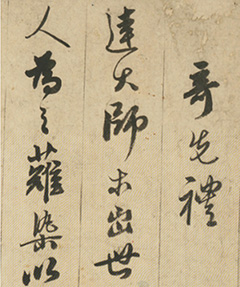 哥先禮
達大師出世
人為之薙染以